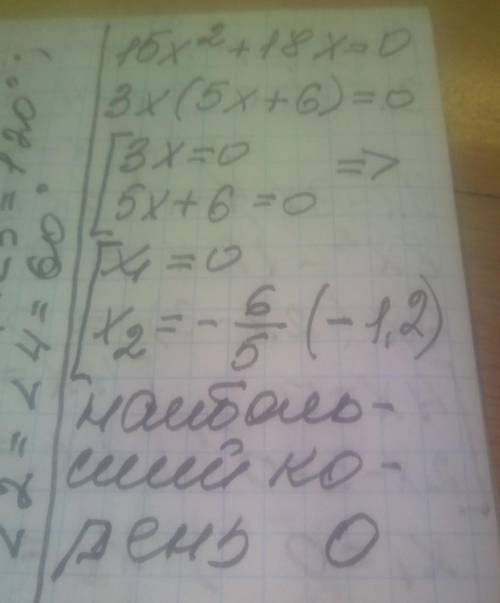 15x² + 18x = 0
3x(5x+6) = 0
[3x = 0 =>
5x+6 = 0
[x₁ = 0
x₂ = - 6/5 (-1,2)
наиболь-
ший ко-
рень 0
<2 = <4 = 60°
= 120°;